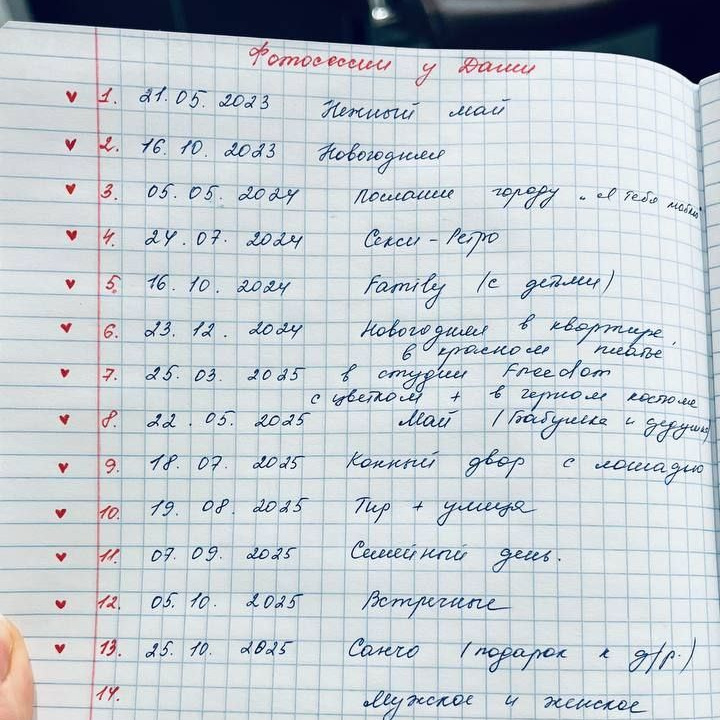 Фотосессии у Даши
♥ 1. 21.05.2023 Нежный май
♥ 2. 16.10.2023 Новогодняя
♥ 3. 05.05.2024 послание городу „Я тебя люблю"
♥ 4. 24.07.2024 Секси-Ретро
♥ 5. 16.10.2024 Family (с детьми)
♥ 6. 23.12.2024 Новогодняя в квартире,
в красном платье
♥ 7. 25.03.2025 в студии Freedom
с цветком + в черном костюме
♥ 8. 22.05.2025 Май (Бабушка и дедушка)
♥ 9. 18.07.2025 Конный двор с лошадью
♥ 10. 19.08.2025 Тир + улица
♥ 11. 07.09.2025 Семейный день.
♥ 12. 05.10.2025 Встречные
♥ 13. 25.10.2025 Санчо (подарок к д/р.)
14. Мужское и женское